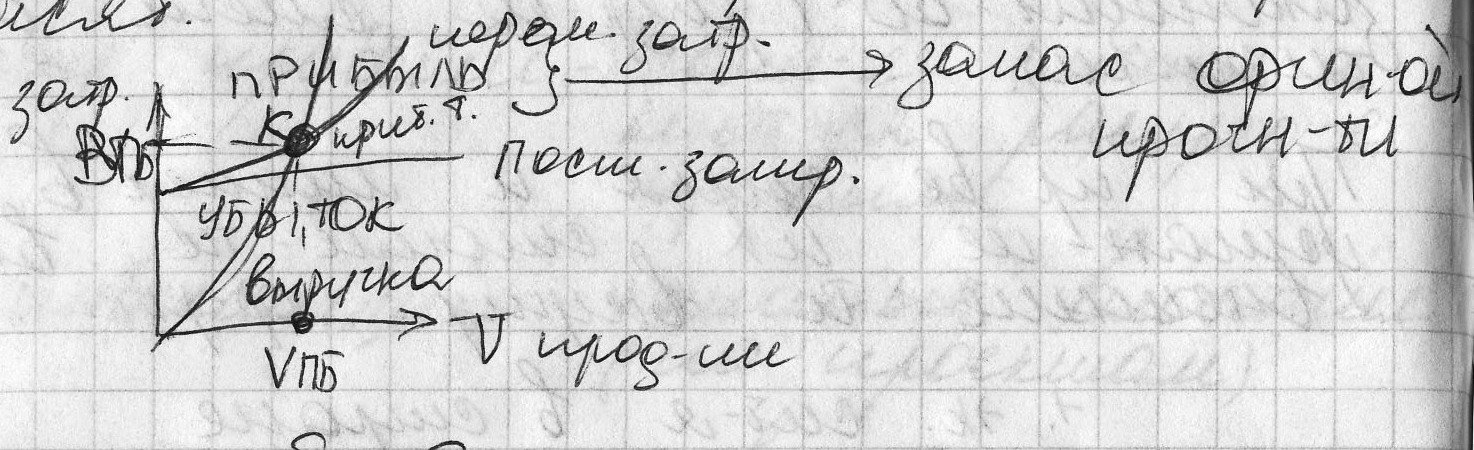 перем. затр.
затр. ПРИБЫЛЬ } → запас фин-ой
К крит. т. прочн-ти
ВПБ
Пост. затр.
УБЫТОК
выручка
V прод-ии
VПБ